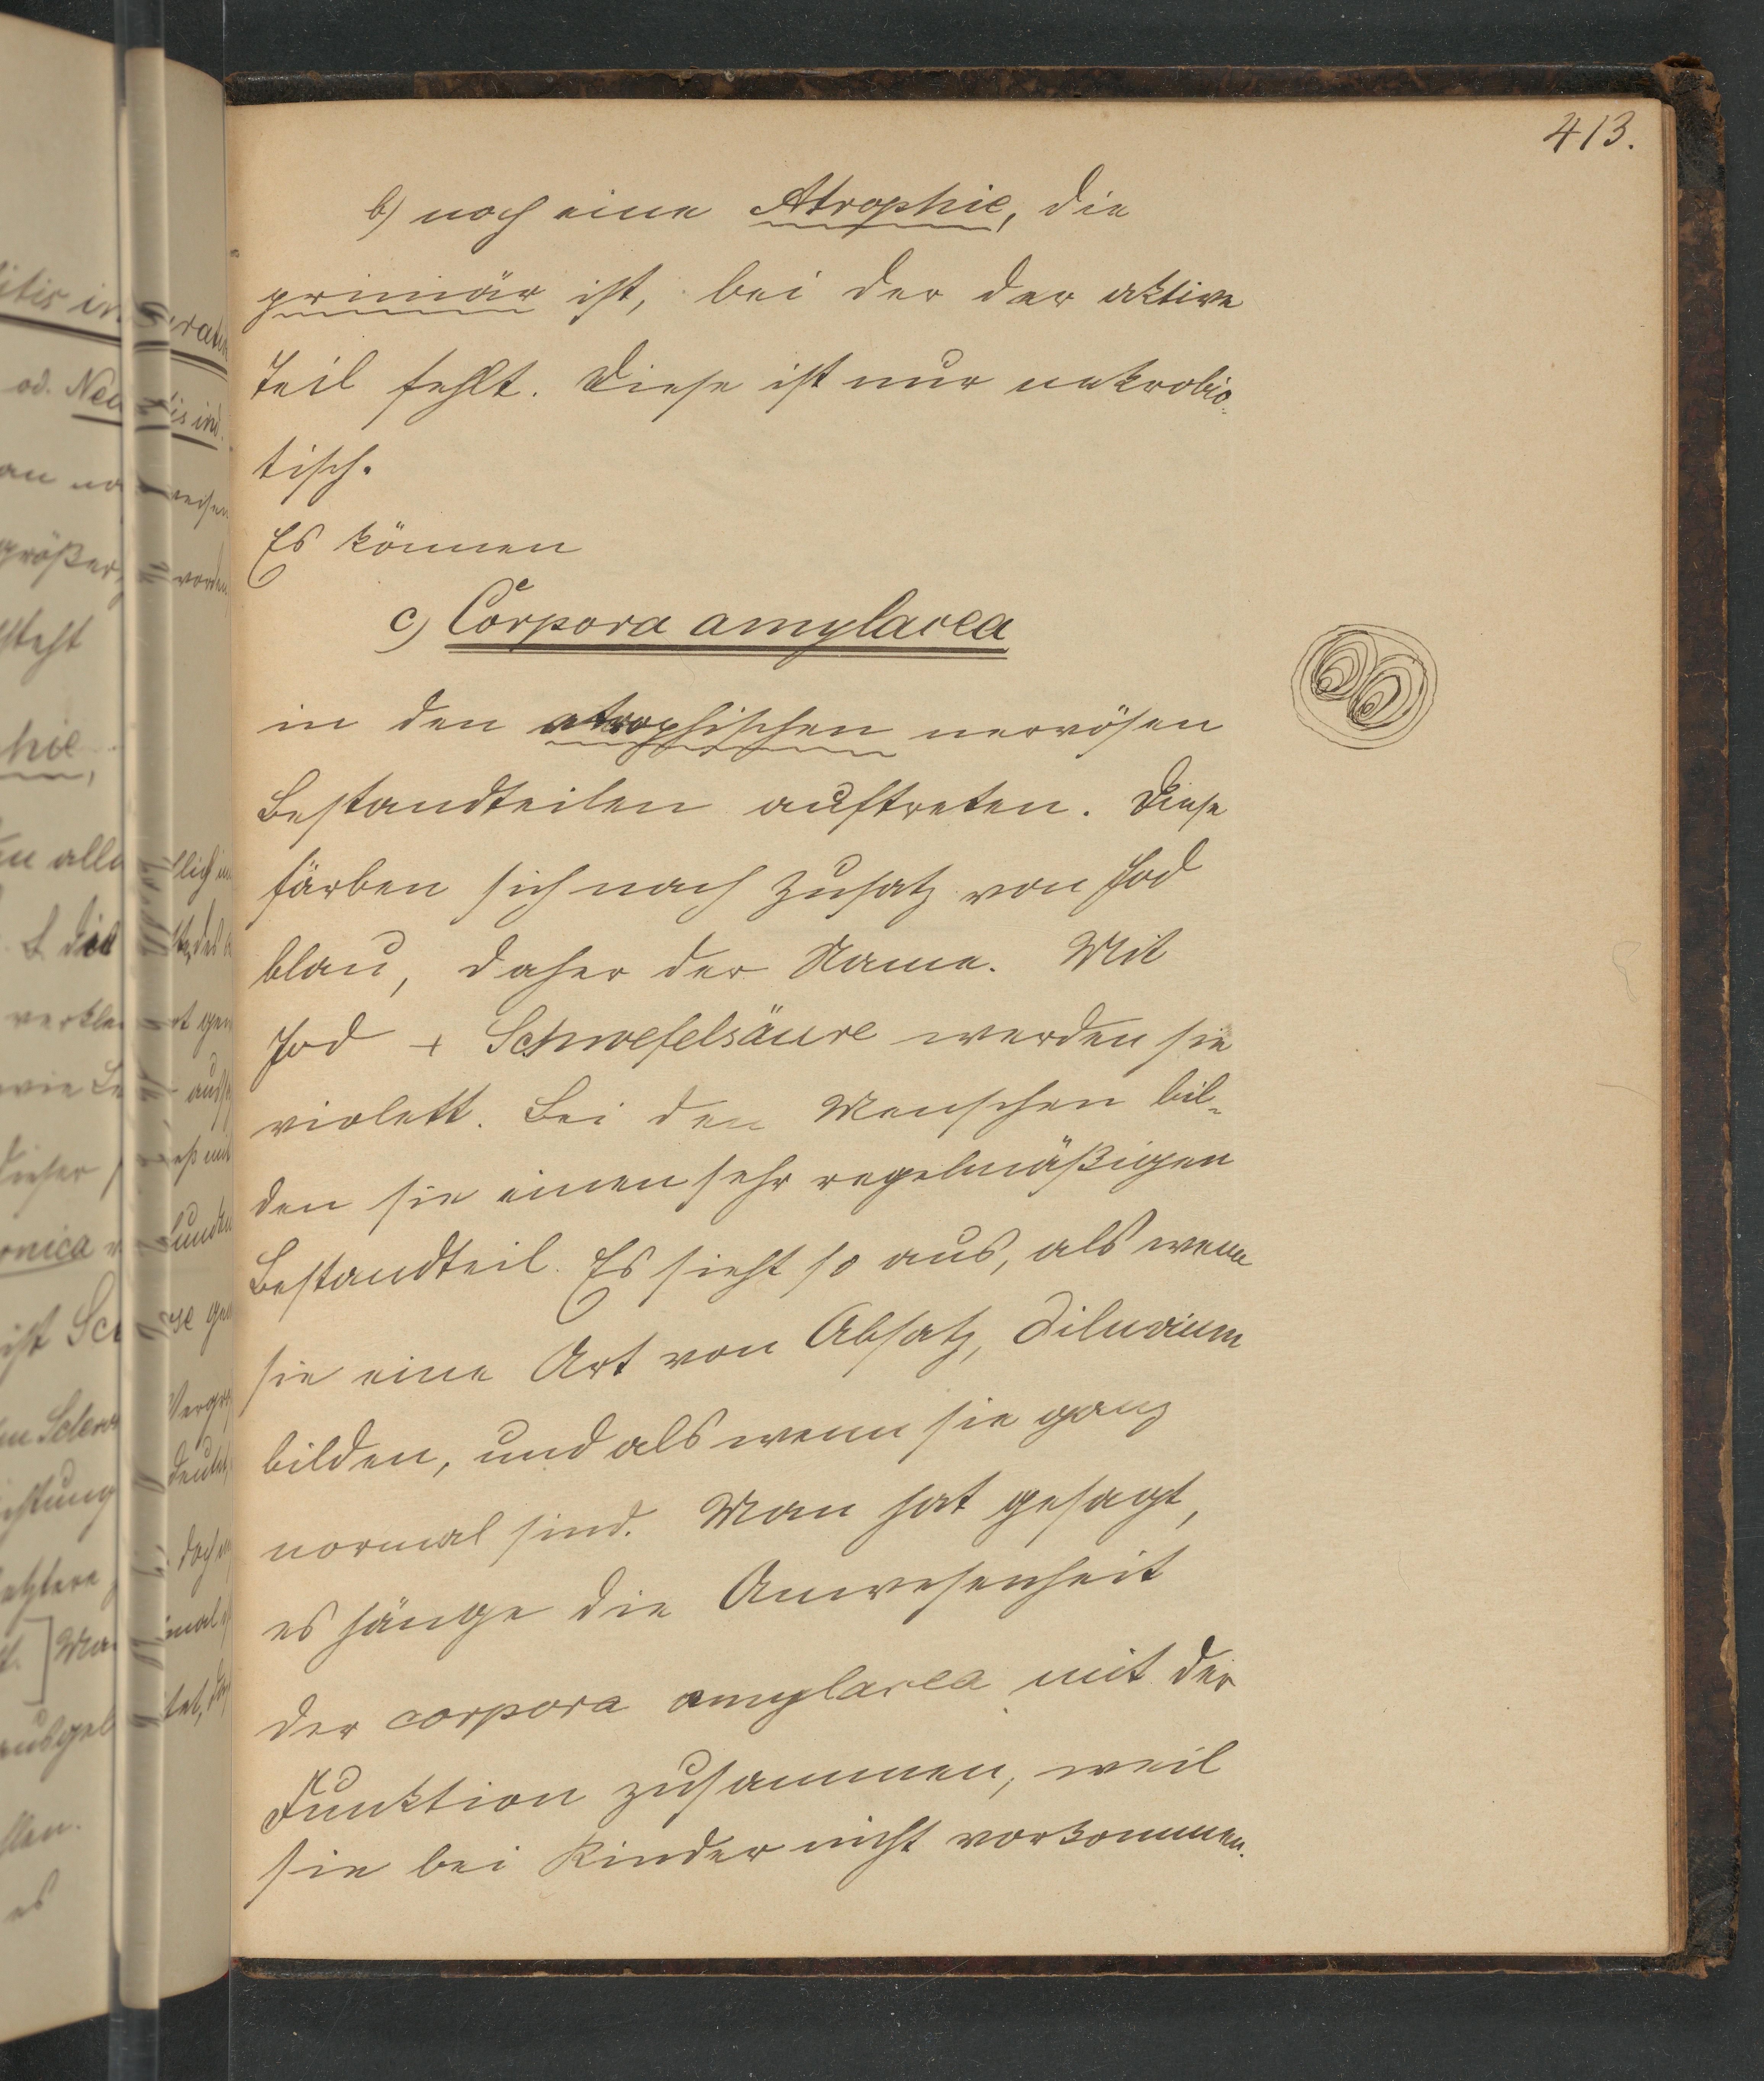 413.
b) noch eine Atrophie, die
primär ist, bei der der aktive
Teil fehlt. Diese ist nur nekrobio-
tisch.
Es können
c) Corpora amylacea
in den atrophischen nervösen
Bestandteilen auftreten. Diese
färben sich nach Zusatz von Jod
blau, daher der Name. Mit
Jod + Schwefelsäure werden sie
violett. Bei den Menschen bil-
den sie einen sehr regelmäßigen
Bestandteil. Es sieht so aus, als wenn
sie eine Art von Absatz, Diluvium
bilden, und als wenn sie ganz
normal sind. Man hat gesagt,
es hänge die Anwesenheit
der corpora amylacea mit der
Funktion zusammen, weil
sie bei Kinder nicht vorkommen.